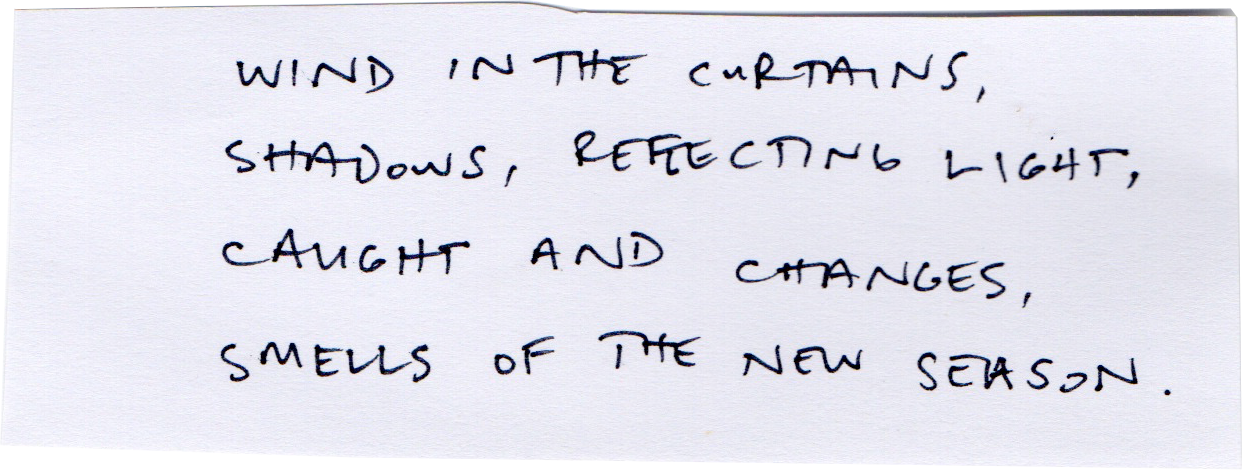 WIND IN THE CURTAINS,
SHADOWS, REFLECTING LIGHT,
CAUGHT AND CHANGES,
SMELLS OF THE NEW SEASON.